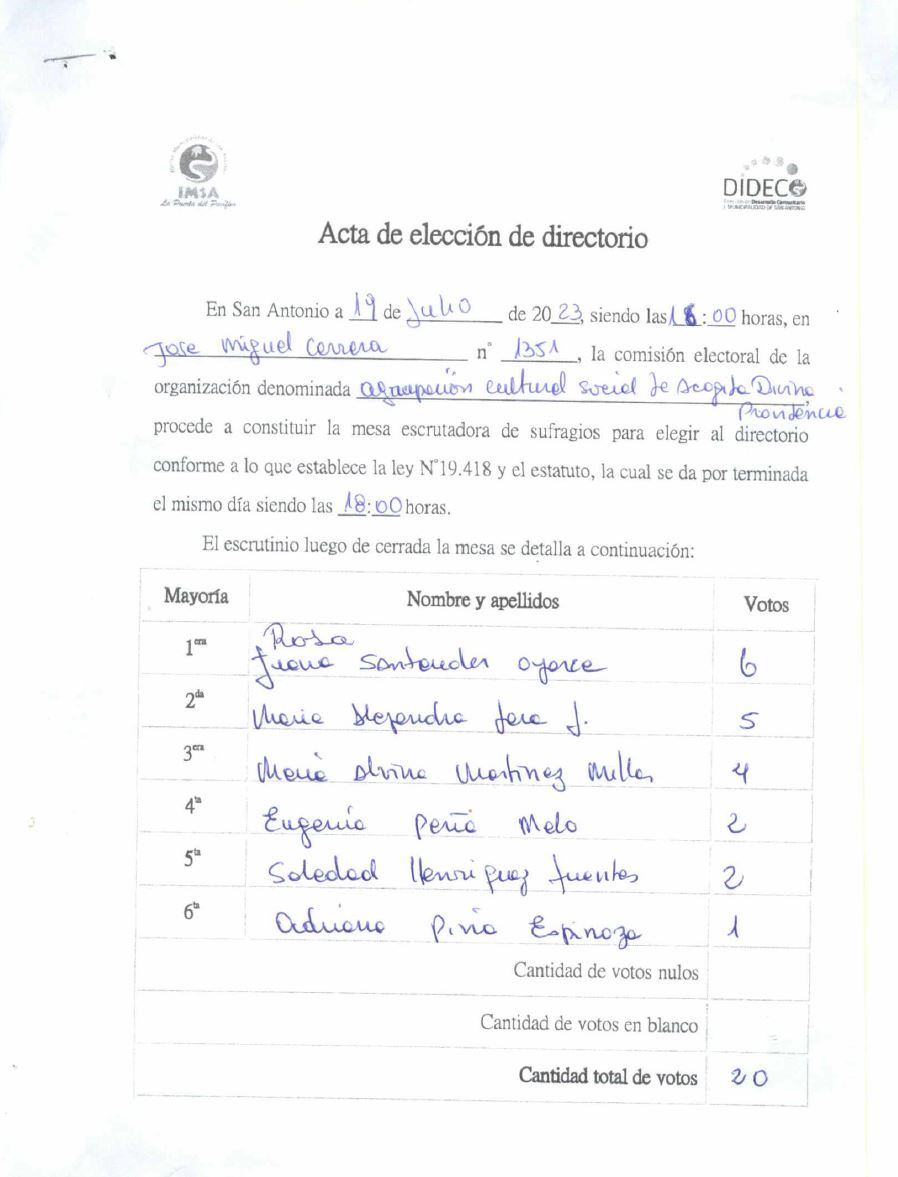 IMSA
La Puerta del Pacífico
DIDECO
Acta de elección de directorio
En San Antonio a 19 de Julio de 2023, siendo las 16:00 horas, en
Jose Miguel Carrera n° 1351, la comisión electoral de la
organización denominada agrupación cultural social de Acogida Divina
Providencia
procede a constituir la mesa escrutadora de sufragios para elegir al directorio
conforme a lo que establece la ley N°19.418 y el estatuto, la cual se da por terminada
el mismo día siendo las 18:00 horas.
El escrutinio luego de cerrada la mesa se detalla a continuación:
Mayoría Nombre y apellidos Votos
Rosa
1era Juana Santander oyarce 6
2da Maria Alejandra Jara J. 5
3era Maria Alvina Martinez Millar 4
4ta Eugenia Peña Melo 2
5ta Soledad Henriquez fuentes 2
6ta Adriana Piña Espinoza 1
Cantidad de votos nulos
Cantidad de votos en blanco
Cantidad total de votos 20